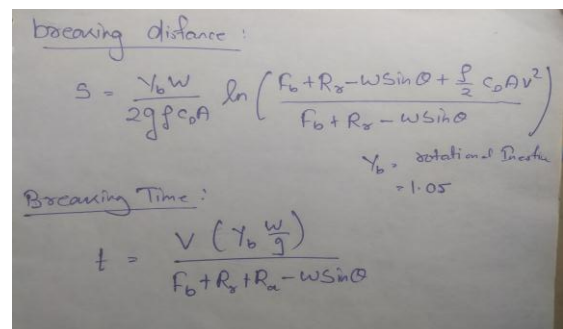 breaking distance :
S = γb W / 2gρCDA ln ( Fb + Rr - W Sin θ + ρ/2 CDAv² / Fb + Rr - W Sin θ )
γb = rotational Inertia
= 1.05
Breaking Time :
t = V ( γb W/g ) / Fb + Rr + Ra - W Sin θ